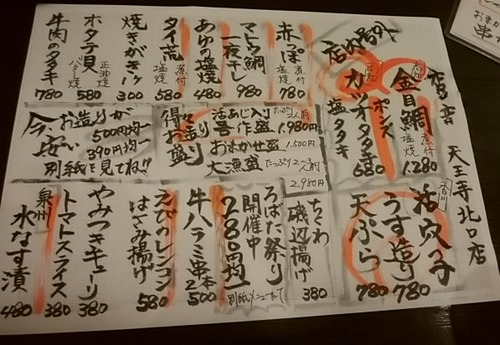 天王寺北口店
金目鯛 煮付 塩焼 1.280
カツオタタキ
ポンズ
塩タタキ 680
活穴子
うす造り 780
天ぷら 780
赤っぽ 煮付 塩焼 780
マトウ鯛
一夜干し 980
あゆの塩焼 480
タイ荒 煮付 塩焼
焼きがき1ヶ 300
ホタテ貝 正油焼 バター焼 580
牛肉のタタキ 780
得々盛り
活あじ入り
吾作盛 1.980円
おまかせ盛 1.500円
大漁盛 たっぷり2〜3人前
2.980円
今
お造りが
500円均一
390円均一
安い
別紙を見てね!!
ちくわ
磯辺揚げ 380
ろばた祭り
開催中
280円均一
別紙メニューで!
牛ハラミ串 2本 500
えびのレンコン
はさみ揚げ 580
やみつきキューリ 380
トマトスライス 380
泉州
水なす漬 480